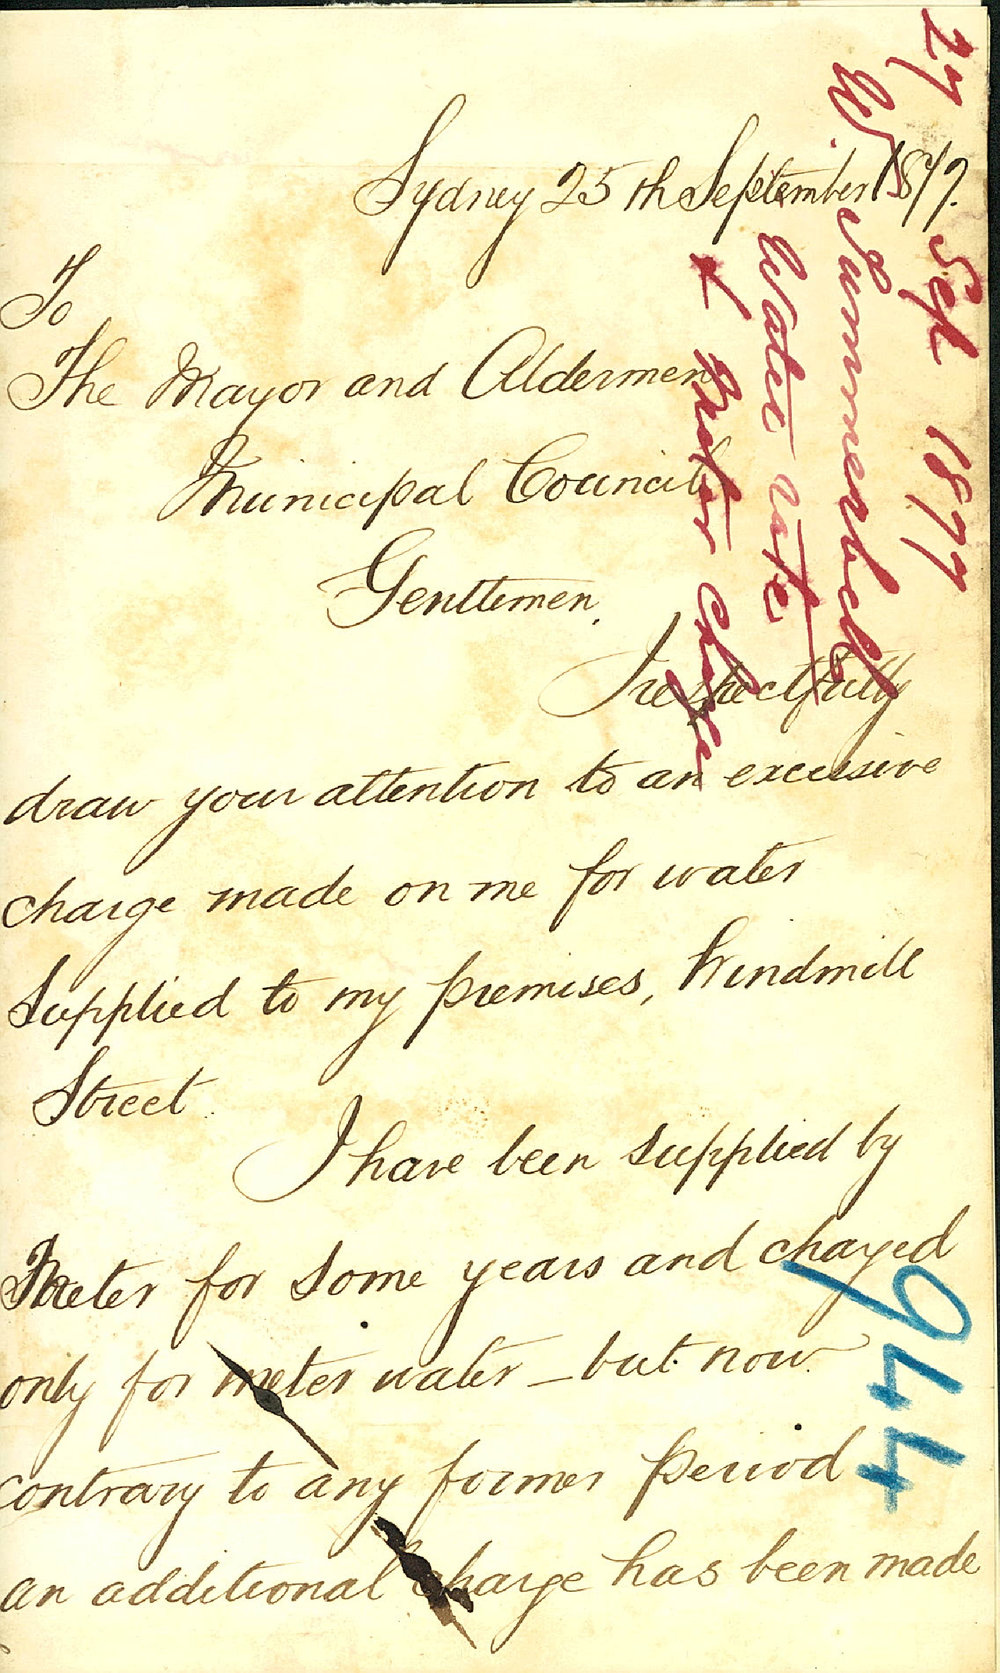 Sydney 25th September 1877.
To
The Mayor and Aldermen
Municipal Council
Gentlemen,
I respectfully
draw your attention to an excessive
charge made on me for water
Supplied to my premises, Windmill
Street.
I have been supplied by
Meter for some years and charged
only for meter water – but now
contrary to any former period
an additional charge has been made
27 Sept 1877
W. Summerbell
Water rate
& Meter charge
944